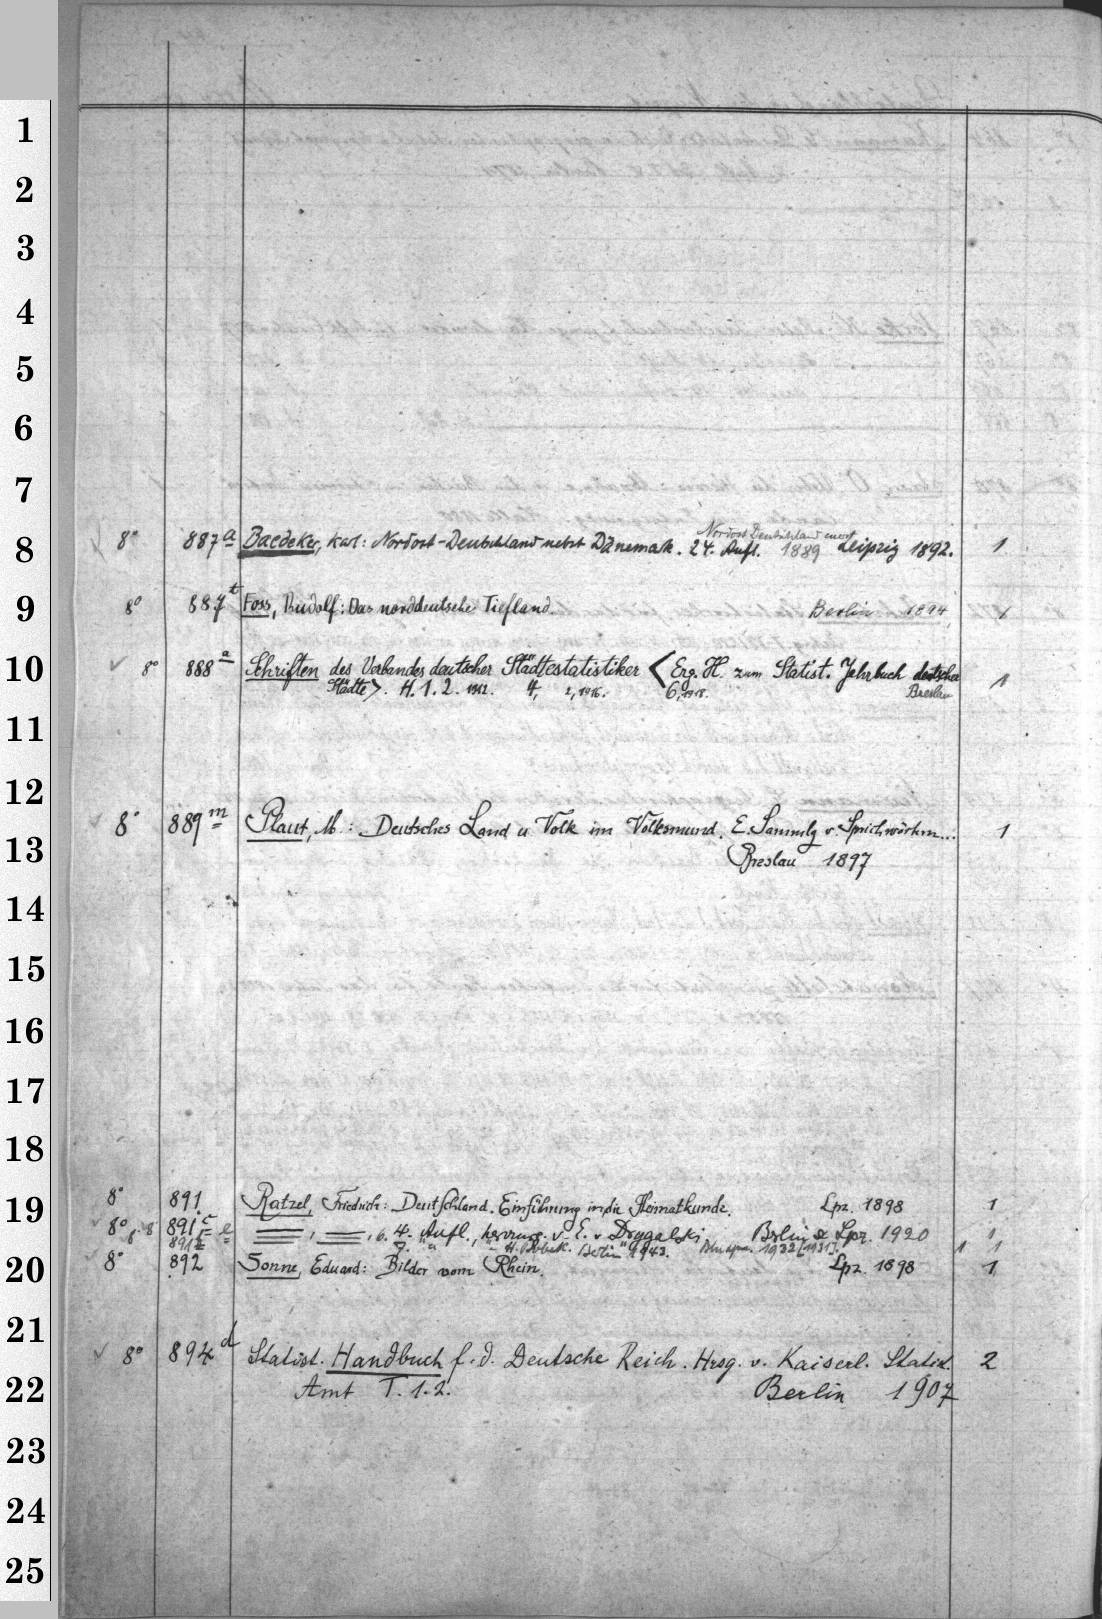 1
2
3
4
5
6
7
Nordost Deutschland
8 8° 887a Baedeker, Karl: Nordost-Deutschland nebst Dänemark. 24. Aufl. 1889 Leipzig 1892. 1
9 8° 887t Foss, Rudolf: Das norddeutsche Tiefland. Berlin 1894 1
10 8° 888a Schriften des Verbandes deutscher Städtestatistiker <Erg. H. zum Statist. Jahrbuch deutscher 1
Städte>. H. 1. 2. 1912. 4, 1916. 6, 1918. Breslau
11
12
8° 889m Plaut, M.: Deutsches Land u Volk im Volksmund. E. Sammlg v. Sprichwörtern... 1
13 Breslau 1897
14
15
16
17
18
19 8° 891. Ratzel, Friedrich: Deutschland. Einführung in die Heimatkunde. Lpz. 1898 1
8° 891c 4. Aufl., v. E. v Drygalski Berlin & Lpz. 1920 1
7. " H. Bobek. Berlin 1943. 1932 [1931]. 1 1
20 8° 892 Sonne, Eduard: Bilder vom Rhein. Lpz. 1898 1
21
8° 894d Statist. Handbuch f. d. Deutsche Reich. Hrsg. v. Kaiserl. Statist. 2
22 Amt T. 1. 2. Berlin 1907
23
24
25